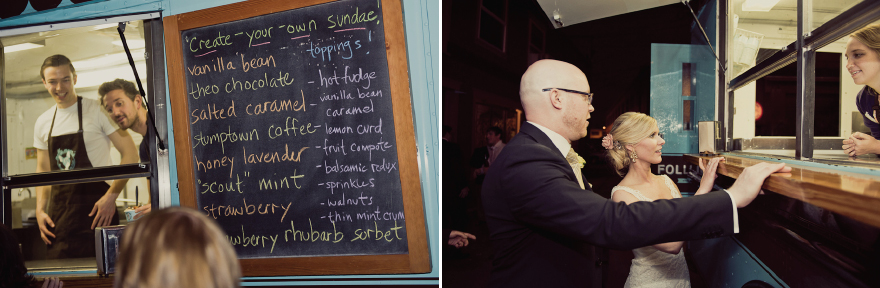 "Create-your-own sundae!
toppings!
vanilla bean
theo chocolate
salted caramel
stumptown coffee
honey lavender
"scout" mint
strawberry
rhubarb sorbet
- hot fudge
- vanilla bean
caramel
- lemon curd
- fruit compote
- balsamic redux
- sprinkles
- walnuts
- thin mint crum
FOLL